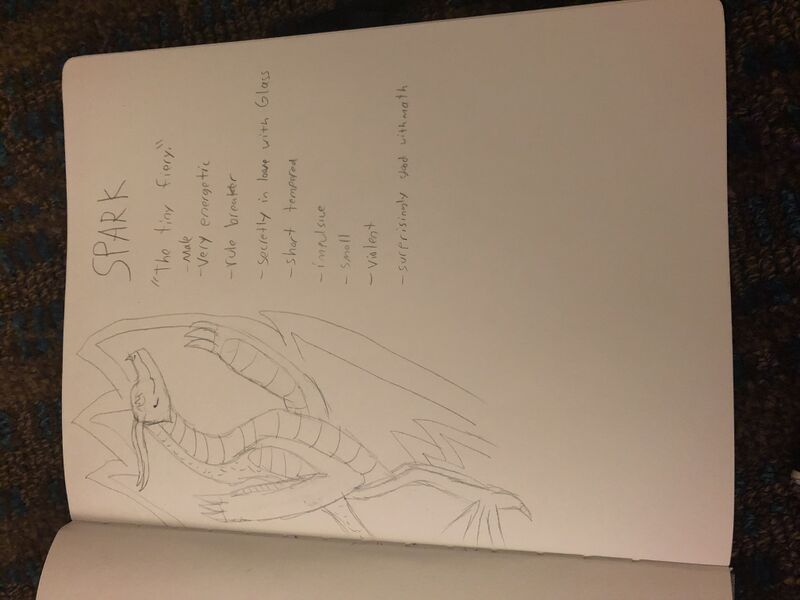 SPARK
"The tiny fiery."
- Male
- Very energetic
- rule breaker
- secretly in love with Glass
- short tempered
- impulsive
- small
- violent
- surprisingly good with math